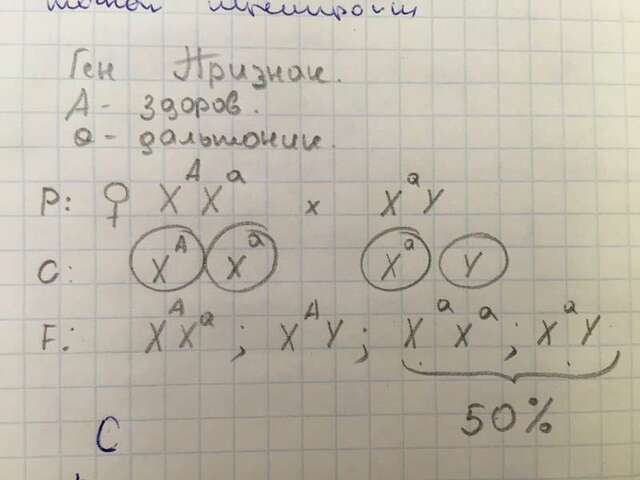 Ген Признак.
А - здоров.
а - дальтоник.
P: ♀ X^A X^a x X^a Y
C: X^A X^a X^a Y
F: X^A X^a ; X^A Y ; X^a X^a ; X^a Y
50%
C